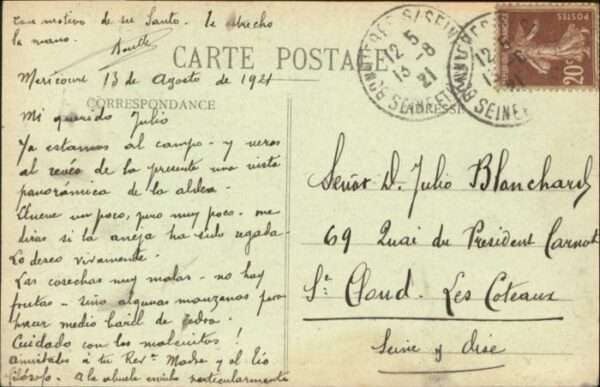 con motivo de su Santo. te estrecho
la mano.
CARTE POSTALE
Mericourt 13 de Agosto de 1921
CORRESPONDANCE
ADRESSE
Mi querido Julio
Ya estamos al campo - y veras
al revés de la presente una vista
panorámica de la aldea.
Llueve un poco, pero muy poco. me
diras si la aneja ha sido regada.
Lo deseo vivamente.
Las cosechas muy malas - no hay
frutas - sino algunas manzanas para
hacer medio baril de
Cuidado con los malcuitos!
amistades à tu Revta Madre y al tío
filósofo. A la abuela envio particularmente
Señor D. Julio Blanchard
69 Quai du President Carnot
St Cloud. Les Coteaux
Seine y Oise
BONNIERES S/SEINE
12 5
13 -8
21
SEINE ET
POSTES
20c